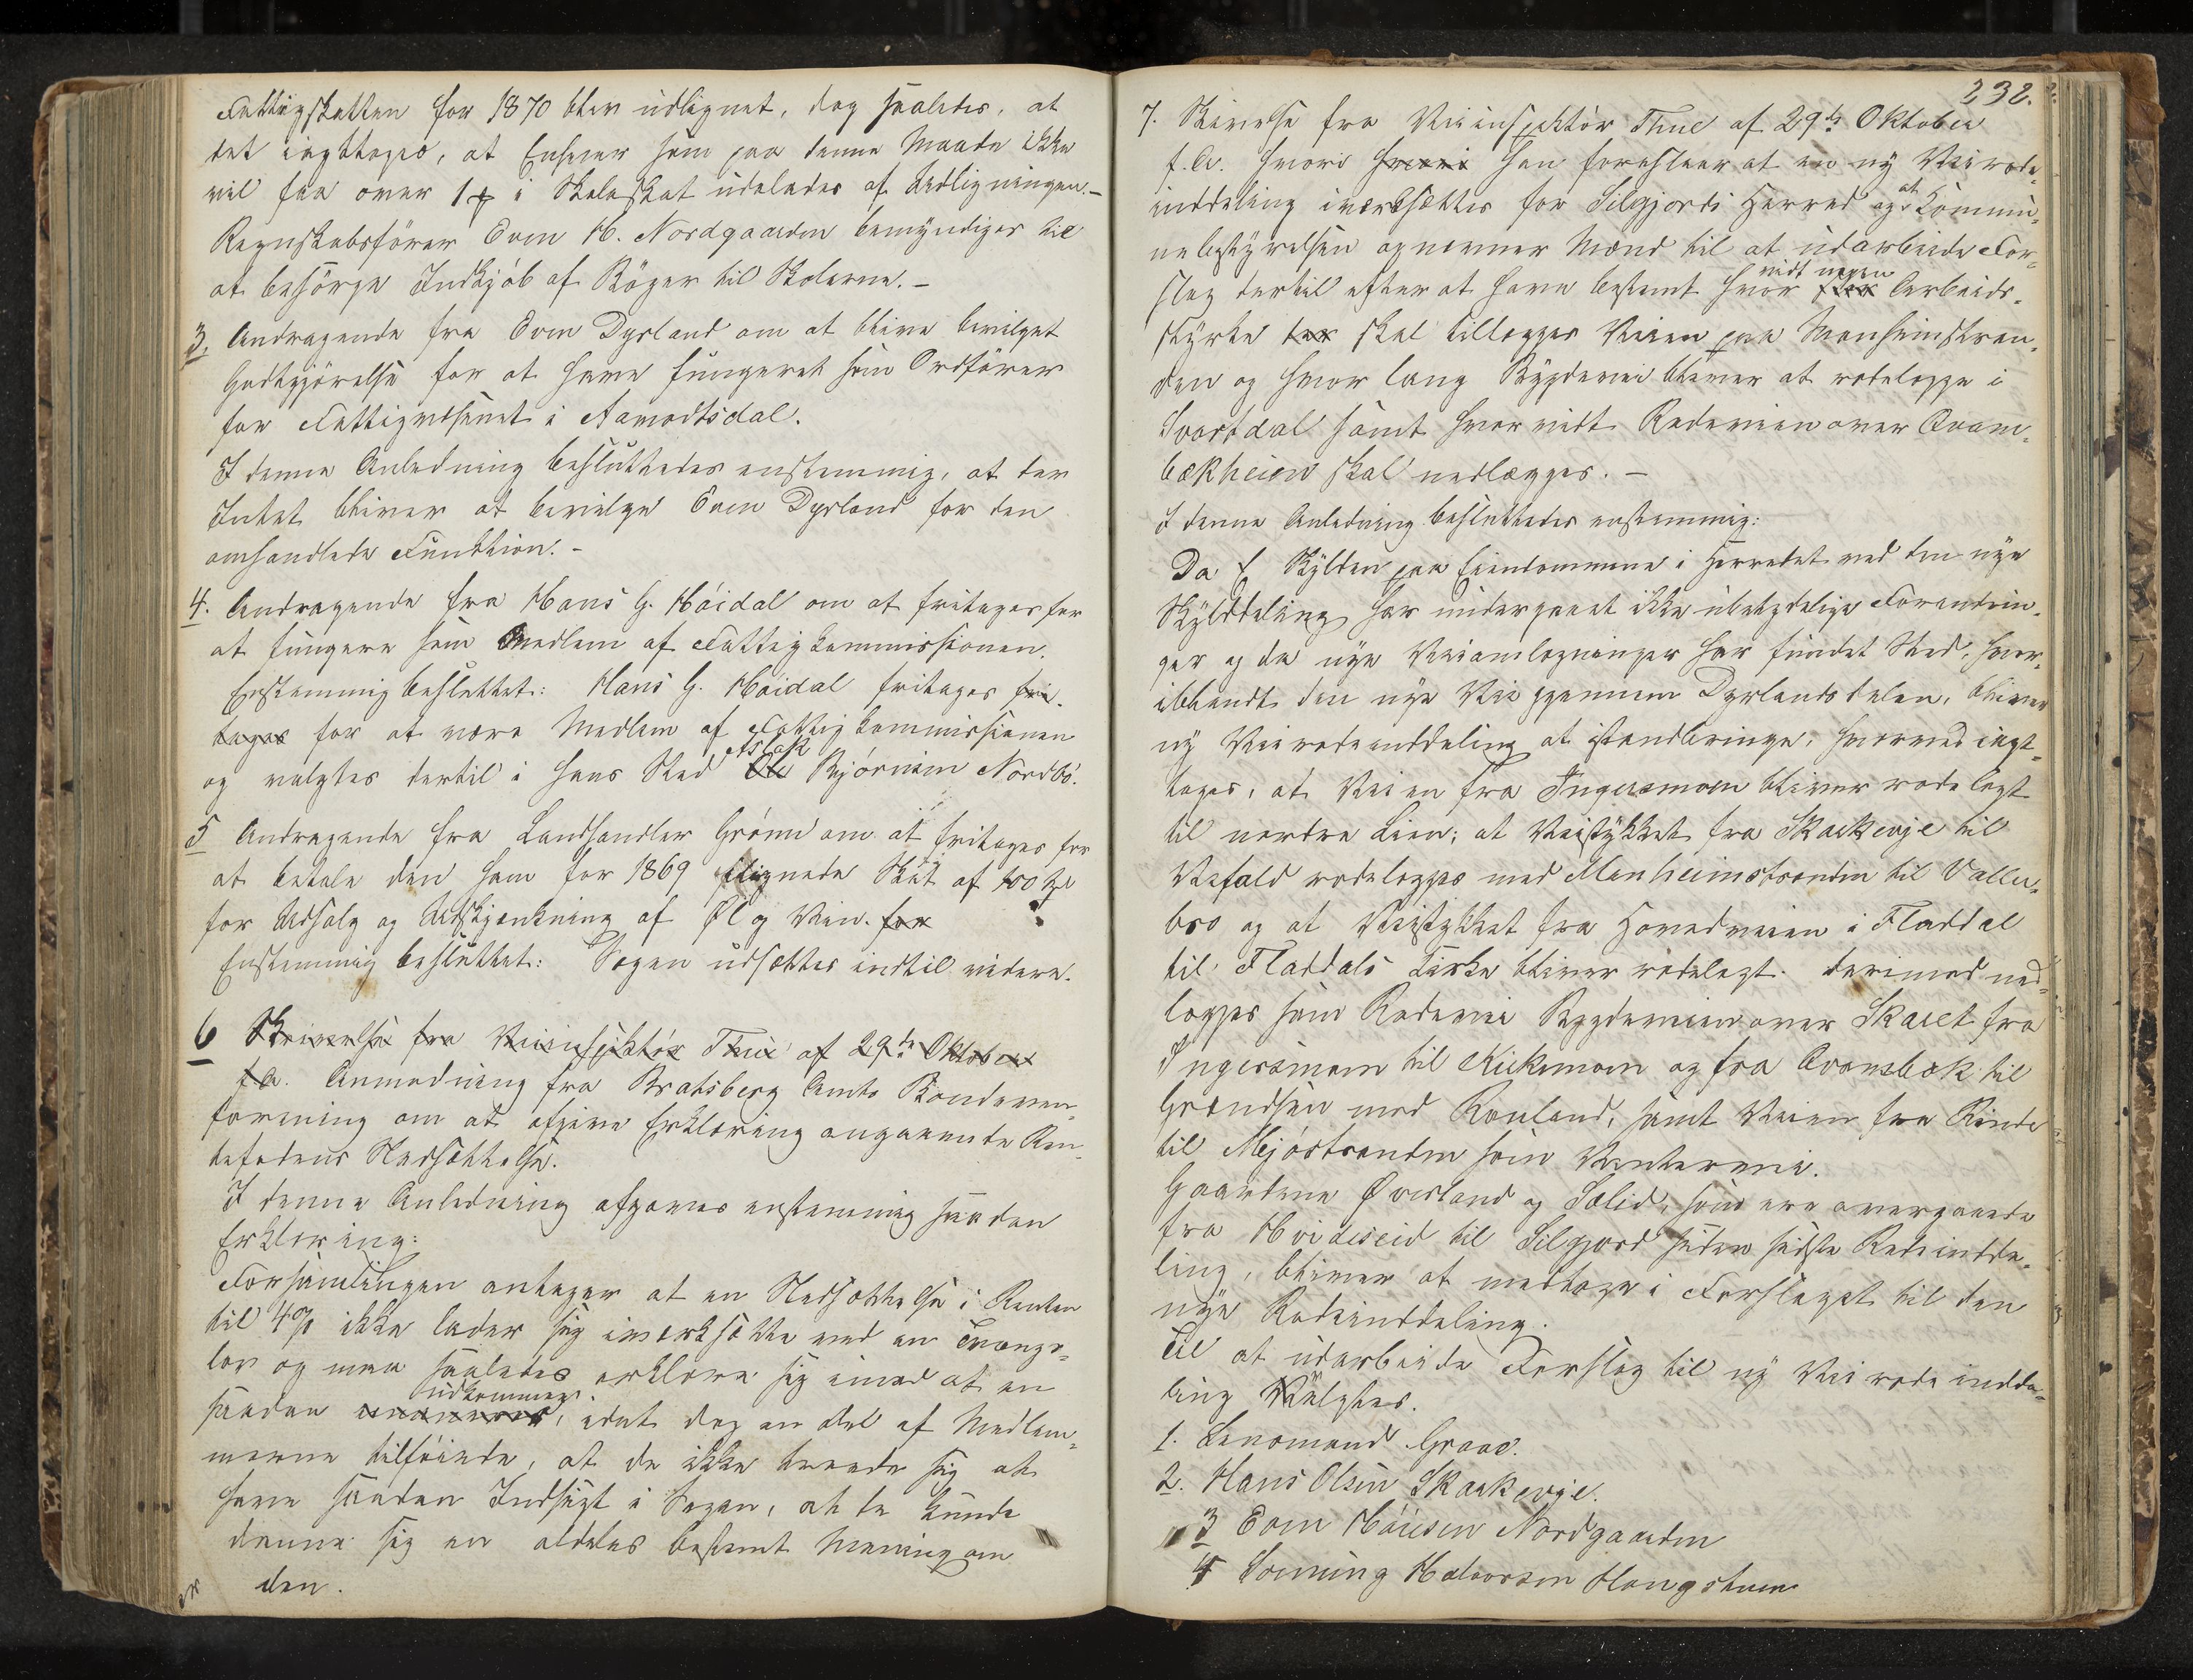 Fattigskatten for 1870 blev udlignet, dog saaledes, at
det iagttages, at Enhver som paa denne Maade ikke
vil faa over 1 β i Skoleskat udelades af Udligningen.-
Regnskabsfører Even H. Nordgaarden bemyndiges til
at besørge Indkjøb af Bøger til Skolerne.-
3. Andragende fra Even Dyrland om at blive bevilget
Godtgjørelse for at have fungeret som Ordfører
for Fattigvæsenet i Aamodtsdal.
I denne Anledning besluttedes enstemmig, at der
Intet bliver at bevilge Even Dyrland for den
omhandlede Funktion.-
4. Andragende fra Hans G. Høidal om at fritages for
at fungere som Medlem af Fattigkommissionen.
Enstemmig besluttet: Hans G. Høidal fritages fri-
tages for at være Medlem af Fattigkommissionen
og valgtes dertil i hans Sted Ole Aslak Bjørnsen Nordbø.
5 Andragende fra Landhandler Grønn om at fritages for
at betale den ham for 1869 ilignede Skat af 100 Spd
for Udsalg og Udskjænkning af Øl og Vin. for
Enstemmig besluttet: Sagen udsættes indtil videre.
6 Skrivelse fra Veiinspektør Thue af 29de Oktober
f.A. Anmodning fra Bratsberg Amts Bondeven-
forening om at afgive Erklæring angaaende Ren-
tefodens Nedsættelse.
I denne Anledning afgaves enstemmig saadan
Erklæring:
Forsamlingen antager at en Nedsættelse i Renten
til 4% ikke lader sig iværksætte ved en Tvangs-
lov og maa saaledes erklære sig imod at en
saadan udkommer, idet dog en Del af Medlem-
merne tilføiede, at de ikke troede sig at
have saadan Indsigt i Sagen, at de kunde
danne sig en aldeles bestemt Mening om
den.
232.
7. Skrivelse fra Veiinspektør Thue af 29de Oktober
f.A. hvori hvori han foreslaar at en ny Veirode-
inddeling iværksættes for Silgjords Herred og at Kommu-
nebestyrelsen opnævner Mænd til at udarbeide For-
slag dertil efter at have bestemt hvor vidt nogen Arbeids-
styrke der skal tillægges Veien paa Manheimstran-
den og hvor lang Bygdevei bliver at rodelægge i
Svartdal samt hvorvidt Rodeveien over Qvam-
bækheien skal nedlægges.-
I denne Anledning besluttedes enstemmig:
Da Skylden paa Eiendommene i Herredet ved den nye
Skylddeling har undergaaet ikke ubetydelige Forandrin-
ger og da nye Veiomlægninger har fundet Sted, hvor-
iblandt den nye Vei gjennem Dyrlandsdalen, bliver
ny Veirodeinddeling at istandbringe, hvorved iagt-
tages, at Veien fra Ingersmoen bliver rodelagt
til nordre Lien; at Veistykket fra Skarkevje til
Vefald rodelægges med Manheimstranden til Valle-
bro og at Veistykket fra Hovedveien i Fladdal
til Fladdals Kirke bliver rodelagt. Derimod ned-
lægges som Rodevei Bygdeveien over Skaret fra
Ingersmoen til Kikkemoen og fra Qvamsbæk til
Grændsen mod Rauland, samt Veien fra Rinde
til Mjøstranden som Vintervei.
Gaardene Øverland og Solid, som ere overgaaede
fra Hvideseid til Silgjord siden sidste Rodeindde-
ling, bliver at medtage i Forslaget til den
nye Rodeinddeling.
Til at udarbeide Forslag til ny Veirodeindde-
ling Valgtes.
1. Lensmand Graae.
2. Hans Olsen Skarkevje.
3 Even Høiesen Nordgaarden
4 Hæming Halvorsen Haugstuen